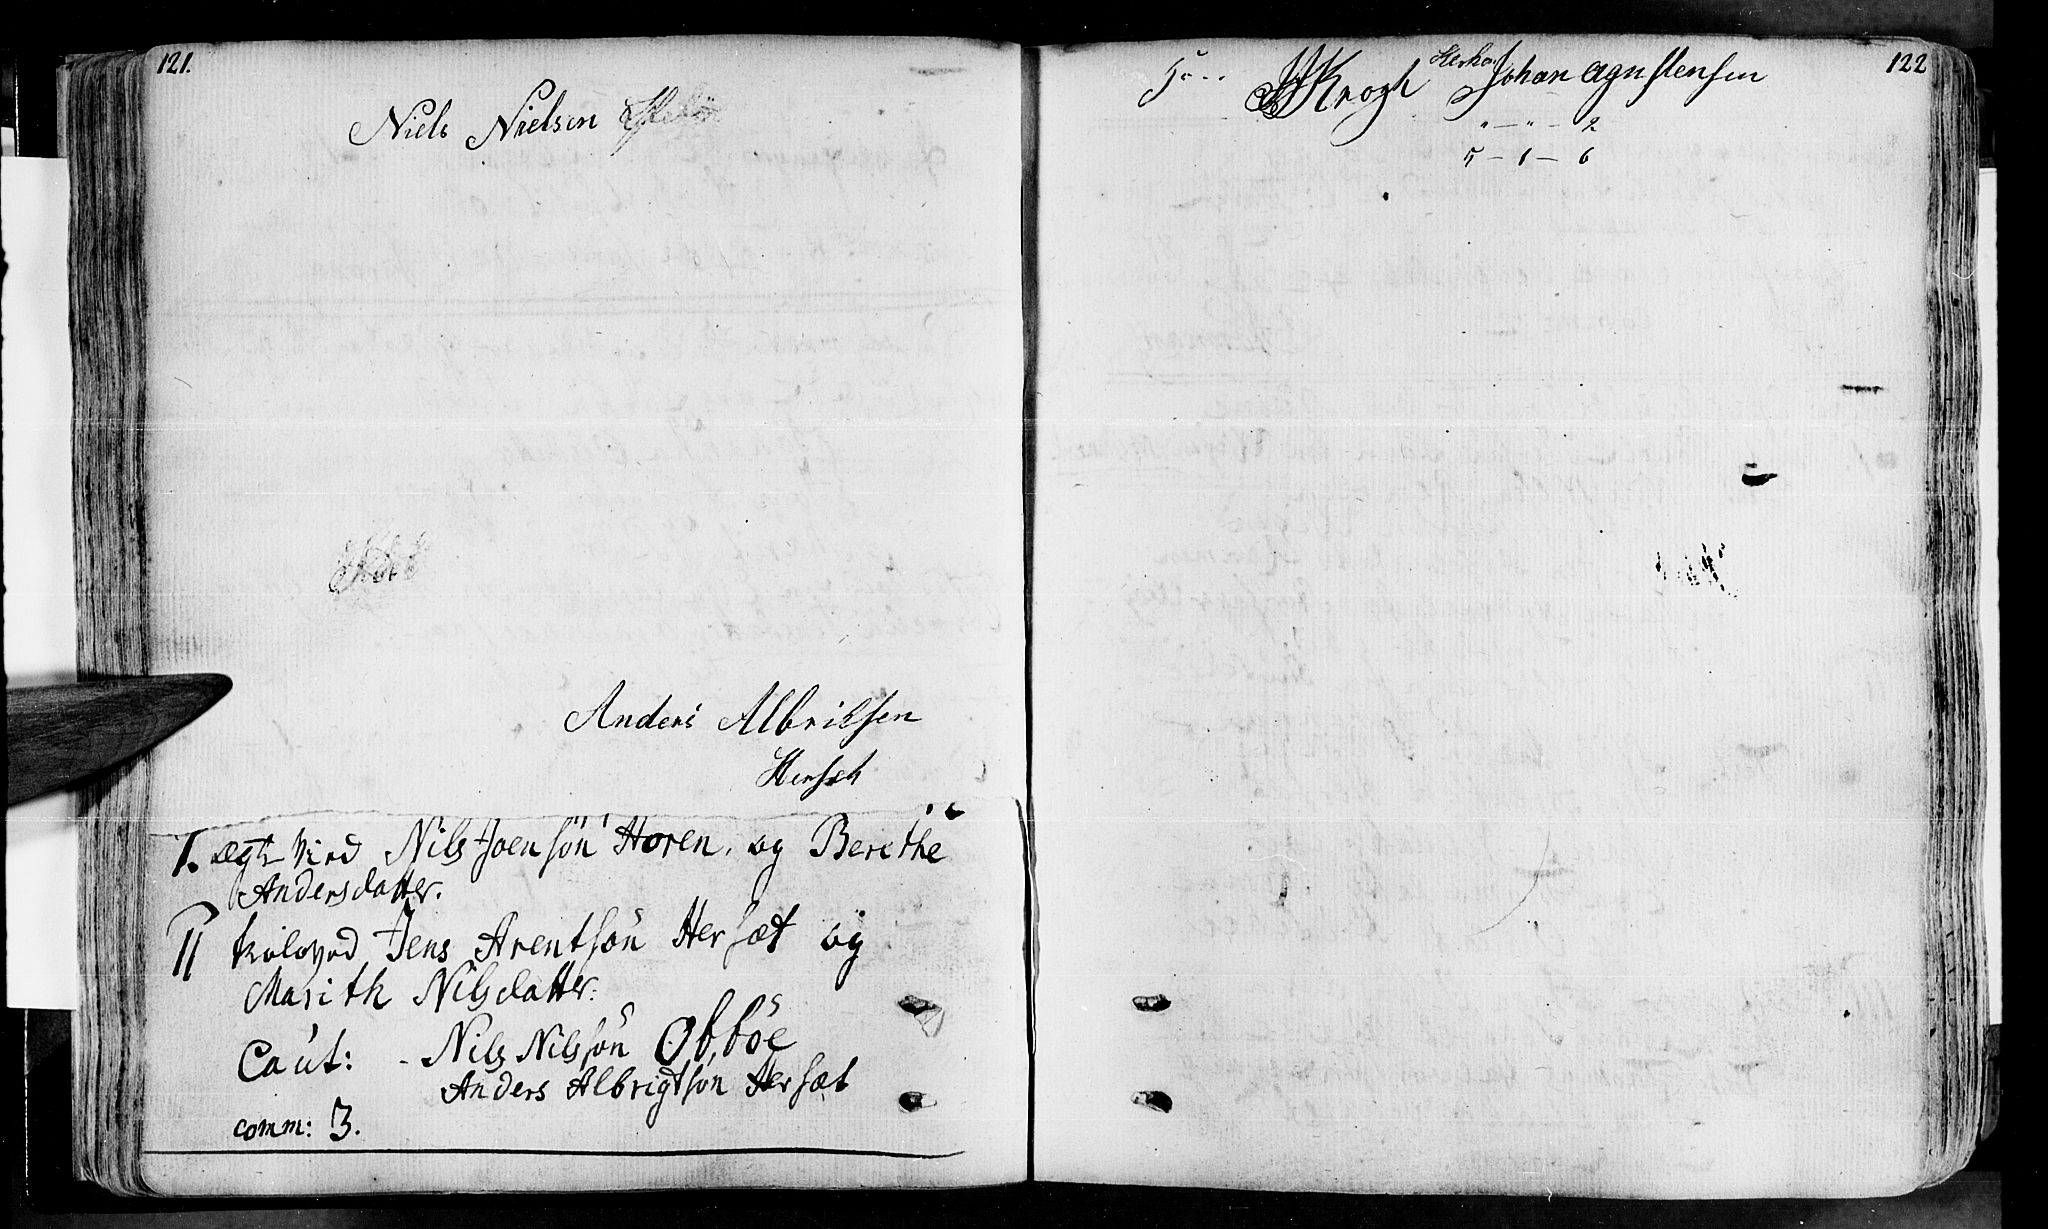 121.
Niels Nielsen
Anders Albrilsen
Hersæt
I. Ægte Vied Nils Joensön Horen. og Berethe
Andersdatter.
II troloved Jens Arentsön Hersæt og
Marith Nilsdatter.
Caut: - Nils Nilssön Obböe
Anders Albrigtsön Hersæt
comm: 3.
122
5 - - -
Krogh Johan Agustensen
" - " - 2
5 - 1 - 6